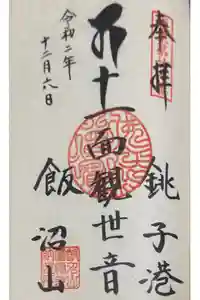 奉拝
銚子港
十一面観世音
飯沼山
令和二年
十二月六日